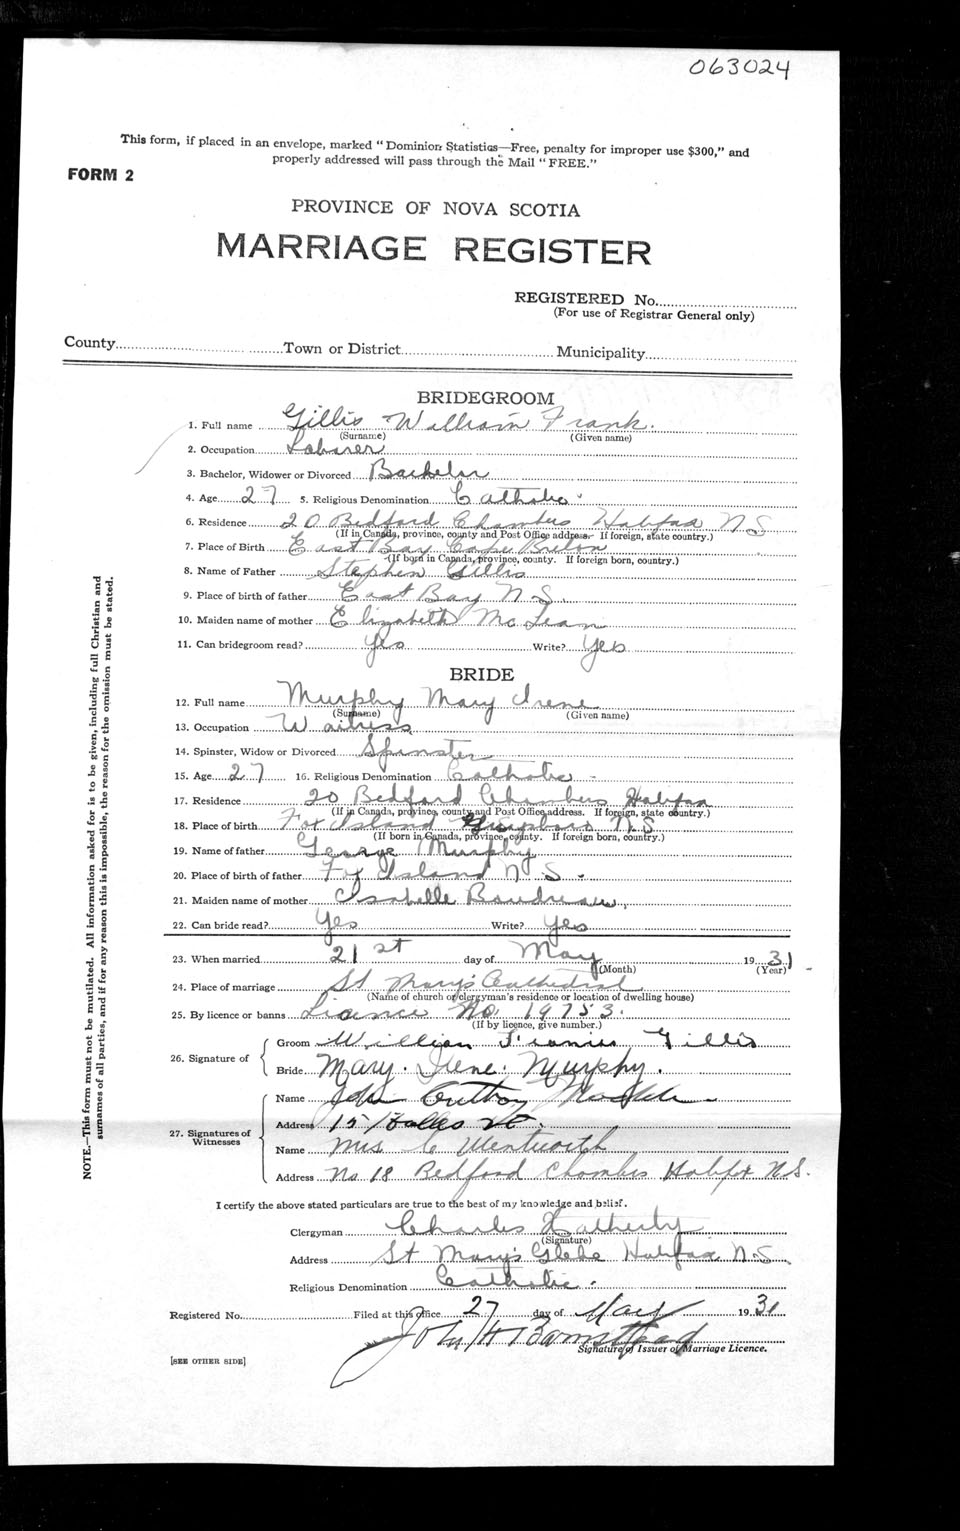 063024
This form, if placed in an envelope, marked "Dominion Statistics—Free, penalty for improper use $300," and
properly addressed will pass through the Mail "FREE."
FORM 2
PROVINCE OF NOVA SCOTIA
MARRIAGE REGISTER
REGISTERED No.
(For use of Registrar General only)
County Town or District Municipality
BRIDEGROOM
1. Full name Gillis William Frank.
(Surname) (Given name)
2. Occupation Laborer
3. Bachelor, Widower or Divorced Bachelor
4. Age 27 5. Religious Denomination Catholic
6. Residence 20 Bedford Chambers Halifax N S
(If in Canada, province, county and Post Office address. If foreign, state country.)
7. Place of Birth East Bay Cape Breton
(If born in Canada, province, county. If foreign born, country.)
8. Name of Father Stephen Gillis
9. Place of birth of father East Bay N S.
10. Maiden name of mother Elizabeth McLean
11. Can bridegroom read? Yes Write? Yes
BRIDE
12. Full name Murphy Mary Irene
(Surname) (Given name)
13. Occupation Waitress
14. Spinster, Widow or Divorced Spinster
15. Age 27 16. Religious Denomination Catholic
17. Residence 20 Bedford Chambers Halifax
(If in Canada, province, county and Post Office address. If foreign, state country.)
18. Place of birth Fox Island Guysboro N.S
(If born in Canada, province, county. If foreign born, country.)
19. Name of father George Murphy
20. Place of birth of father Fox Island N S.
21. Maiden name of mother Isabelle Boudreau
22. Can bride read? Yes Write? Yes
23. When married 21st day of May 1931
(Month) (Year)
24. Place of marriage St Mary's Cathedral
(Name of church or clergyman's residence or location of dwelling house)
25. By licence or banns Licence No. 19753.
(If by licence, give number.)
26. Signature of
Groom William Francis Gillis
Bride Mary. Irene. Murphy.
27. Signatures of Witnesses
Name John
Address 15 Hollis St.
Name Mrs C Wentworth
Address No 18 Bedford Chambers Halifax N.S.
I certify the above stated particulars are true to the best of my knowledge and belief.
Clergyman Charles
(Signature)
Address St Mary's Glebe Halifax N.S
Religious Denomination Catholic.
Registered No. Filed at this office 27 day of May 1931
John
Signature of Issuer of Marriage Licence.
[SEE OTHER SIDE]
NOTE.—This form must not be mutilated. All information asked for is to be given, including full Christian and
surnames of all parties, and if for any reason this is impossible, the reason for the omission must be stated.